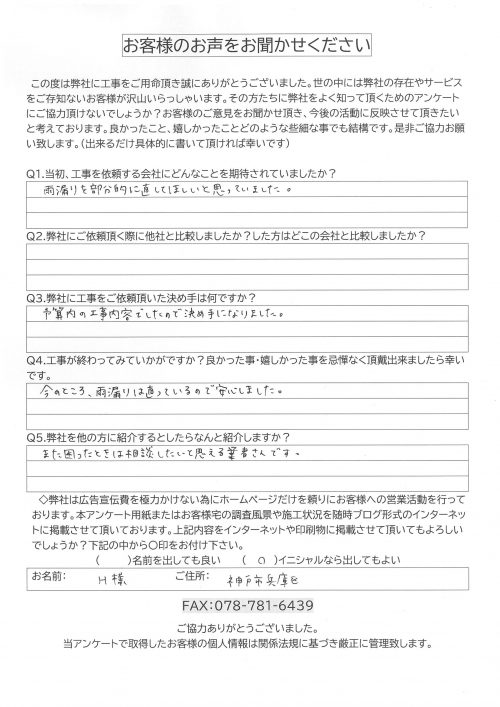 お客様のお声をお聞かせください
この度は弊社に工事をご用命頂き誠にありがとうございました。世の中には弊社の存在やサービス
をご存知ないお客様が沢山いらっしゃいます。その方たちに弊社をよく知って頂くためのアンケート
にご協力頂けないでしょうか？お客様のご意見をお聞かせ頂き、今後の活動に反映させて頂きたい
と考えております。良かったこと、嬉しかったことどのような些細な事でも結構です。是非ご協力お願
い致します。(出来るだけ具体的に書いて頂ければ幸いです)
Q1.当初、工事を依頼する会社にどんなことを期待されていましたか？
雨漏りを部分的に直してほしいと思っていました。
Q2.弊社にご依頼頂く際に他社と比較しましたか？した方はどこの会社と比較しましたか？
Q3.弊社に工事をご依頼頂いた決め手は何ですか？
予算内の工事内容でしたので決め手になりました。
Q4.工事が終わってみていかがですか？良かった事・嬉しかった事を忌憚なく頂戴出来ましたら幸い
です。
今のところ、雨漏りは直っているので安心しました。
Q5.弊社を他の方に紹介するとしたらなんと紹介しますか？
また困ったときは相談したいと思える業者さんです。
◇弊社は広告宣伝費を極力かけない為にホームページだけを頼りにお客様への営業活動を行って
おります。本アンケート用紙またはお客様宅の調査風景や施工状況を随時ブログ形式のインターネッ
トに掲載させて頂いております。上記内容をインターネットや印刷物に掲載させて頂いてもよろしい
でしょうか？下記の中から〇印をお付け下さい。
( )名前を出しても良い ( ○ )イニシャルなら出してもよい
お名前: H様 ご住所: 神戸市兵庫区
FAX:078-781-6439
ご協力ありがとうございました。
当アンケートで取得したお客様の個人情報は関係法規に基づき厳正に管理致します。